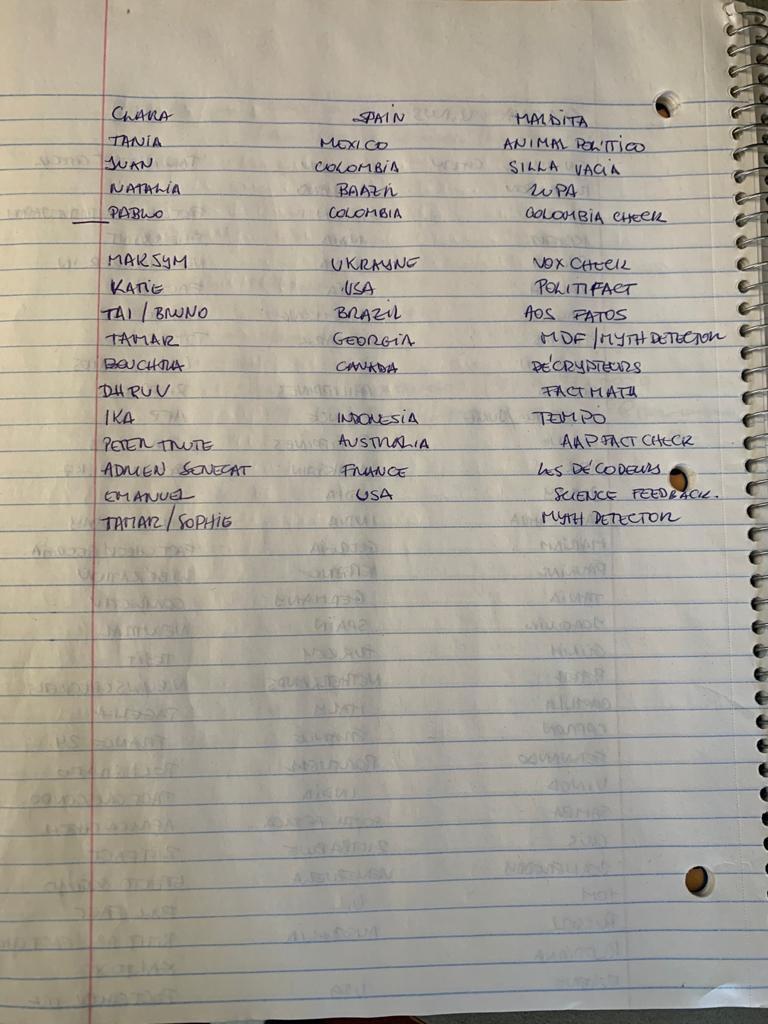 CLARA SPAIN MALDITA
TANIA MEXICO ANIMAL POLITICO
JUAN COLOMBIA SILLA VACIA
NATALIA BRAZIL LUPA
PABLO COLOMBIA COLOMBIA CHECK
MAKSYM UKRAYNE VOX CHECK
KATIE USA POLITIFACT
TAI / BRUNO BRAZIL AOS FATOS
TAMAR GEORGIA MDF / MYTH DETECTOR
BOUCHRA CANADA DÉCRYPTEURS
DHRUV FACTMATA
IKA INDONESIA TEMPO
PETER TRUTE AUSTRALIA AAP FACT CHECK
ADRIEN SENECAT FRANCE LES DÉCODEURS
EMANUEL USA SCIENCE FEEDBACK.
TAMAR / SOPHIE MYTH DETECTOR